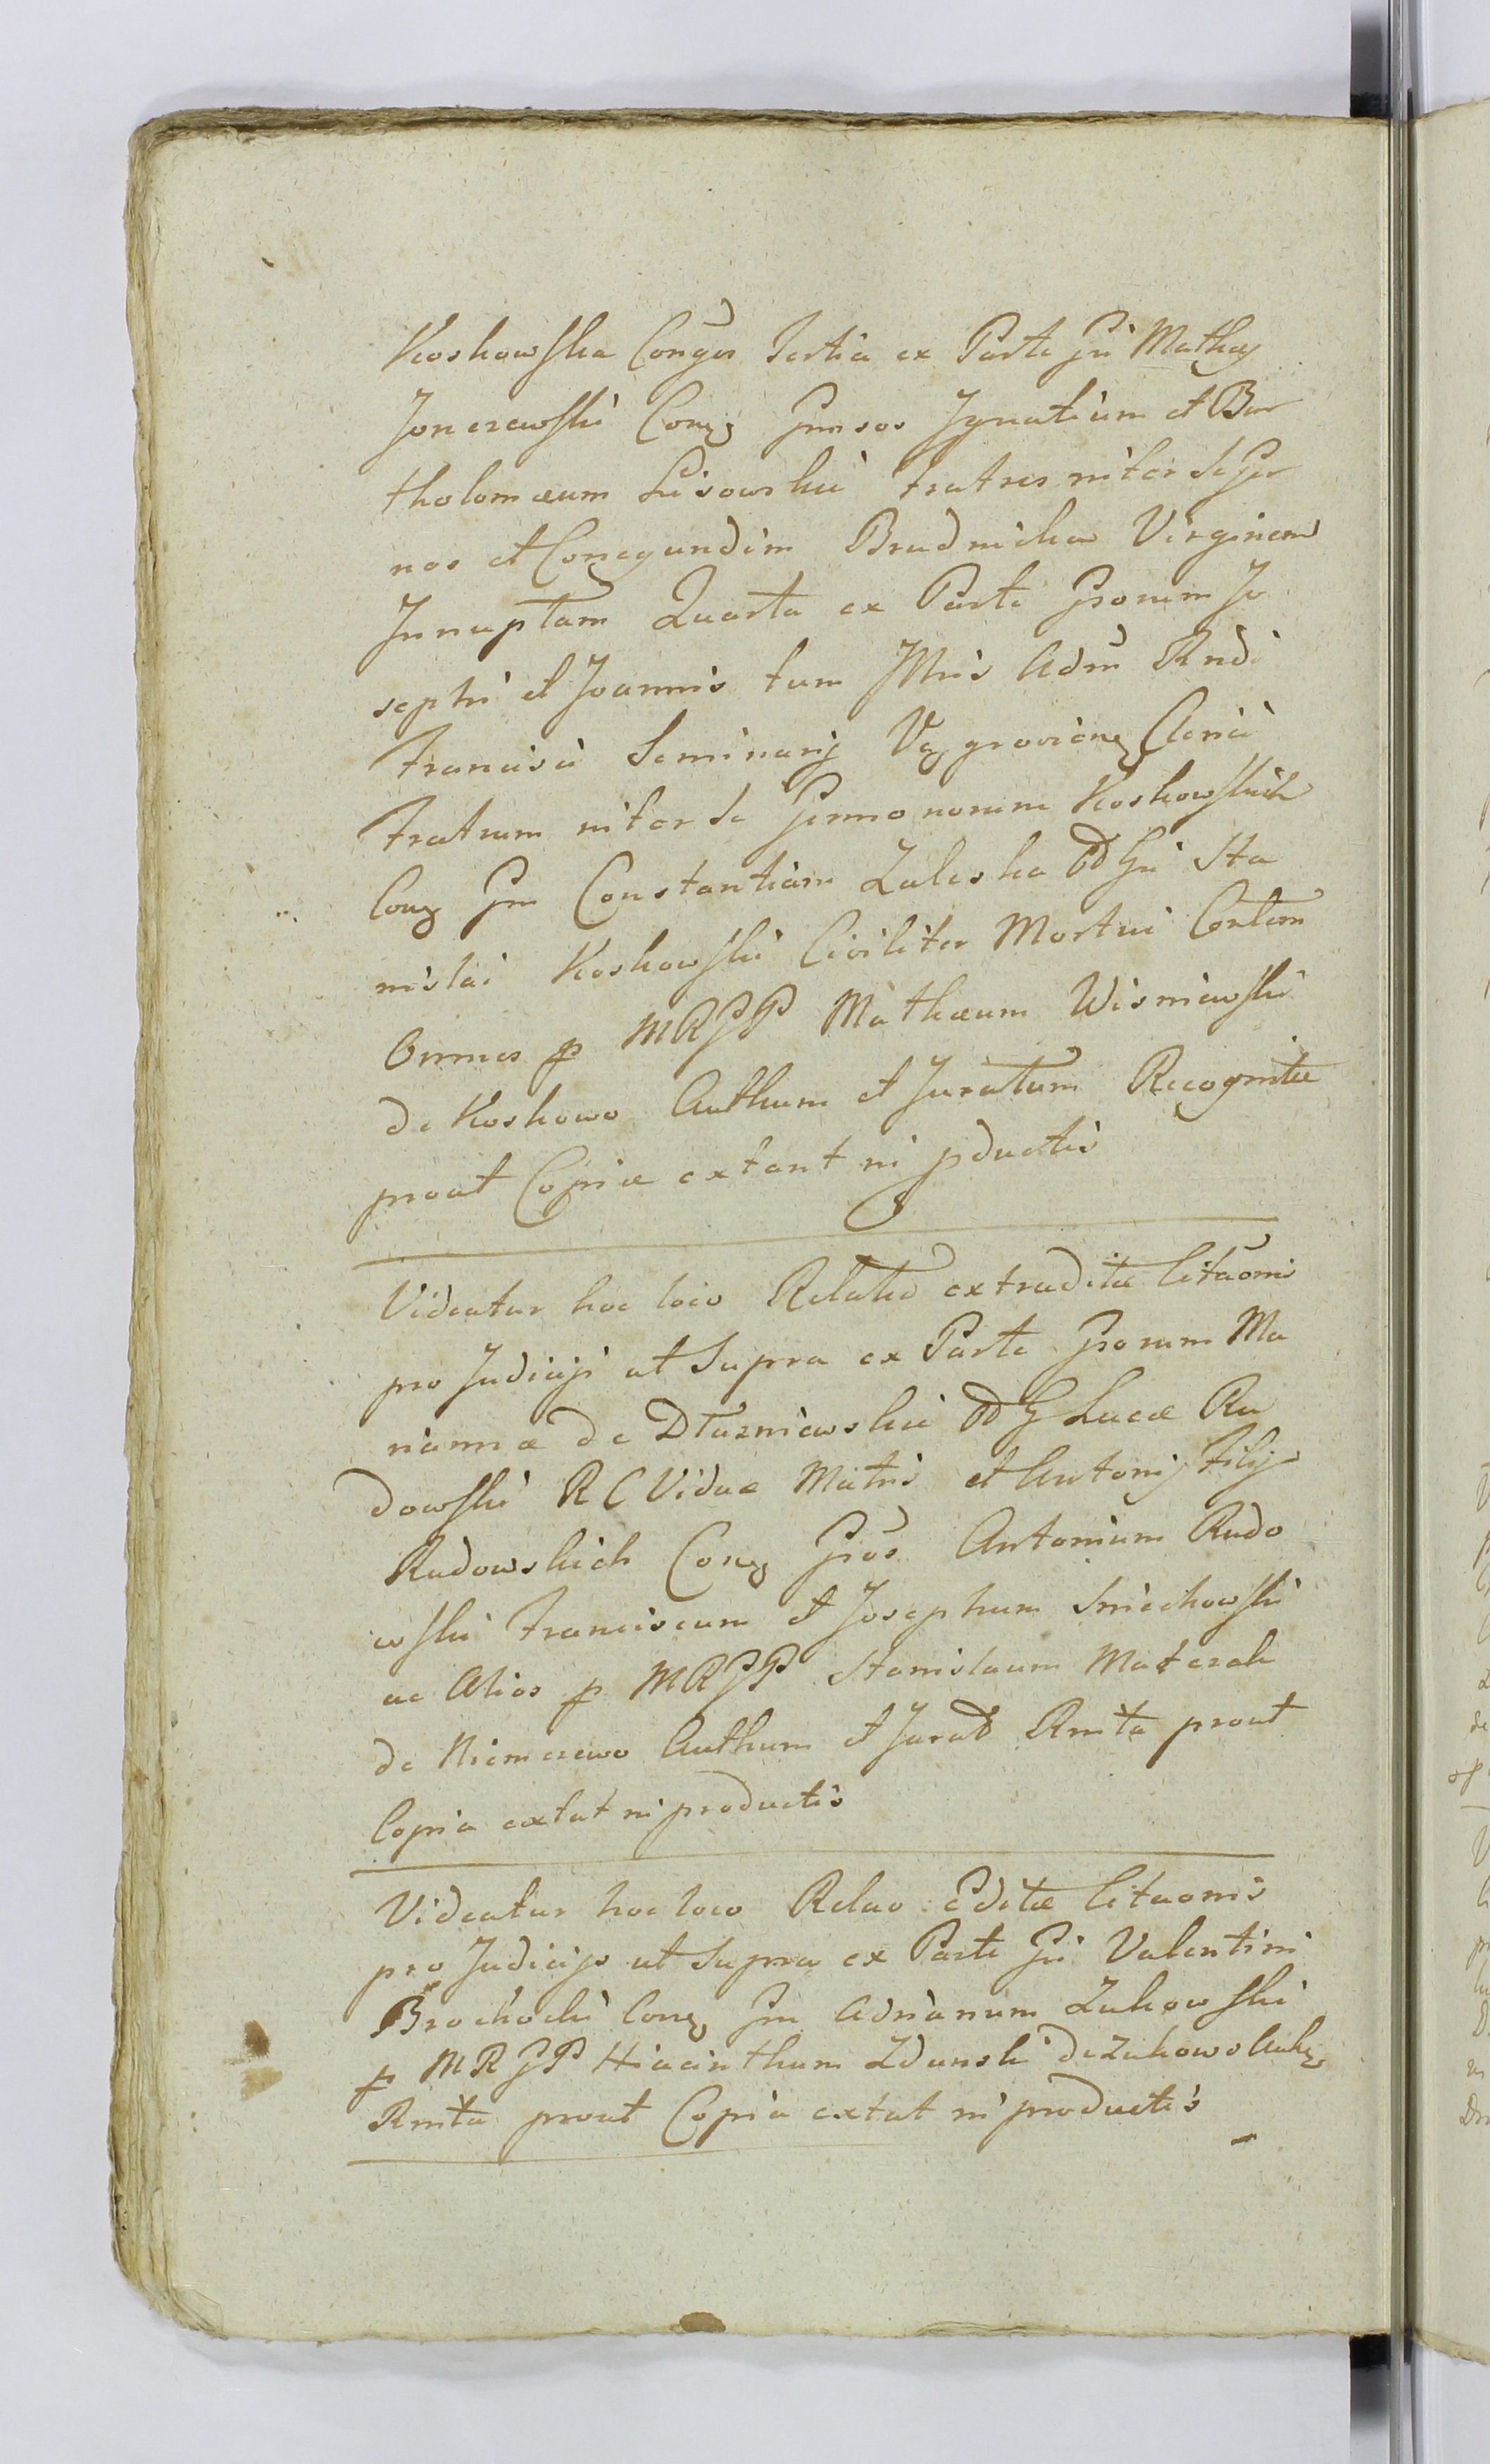 Koskowska Conges Tertia ex Parte Gsi Mathey
Jonczewski Conqz Gnrsos Ignatium et Bar
tholomæum Lisowskie Fratres inter se Ger
nos et Conegundim Brudnicka Virginem
Innuptam Quarta ex Parte Gsorum Jo
sephi et Joannis tum Mris Adm̃ Rndi
Francisci Seminarij Vęgrovienȝ Clerici
Fratrum inter se Germonorum Koskowskich
Conȝ Gm Constantiam Zaleska Od Gsi Sta
nislai Koskowski Civiliter Mortui Contem
Omnes p MRGP Mathæum Wisniewski
de Koskowo Authum et Juratum Recognitæ
prout Copiæ extant in pductis
Videatur hoc loco Relatio extraditæ Citãonis
pro Judicijs ut Supra ex Parte Gsorum Ma
riannæ de Dłuzniewskie Od G Lucæ Ru
dowski RC Viduæ Matris et Antonij Filij
Rudowskich Conȝ Gsos Antonium Rudo
wski Franciscum et Josephum Smiechowski
ac Alios p MRGP Stanislaum Matczak
de Niemczewo Authum et Jurat Rnita prout
Copia extat in productis
Videatur hoc loco Relao Editæ Citaonis
pro Judicijs ut Supra ex Parte Gsi Valentini
Brochocki Conȝ Gm Adrianum Zukowski
p MRGP Hiacinthum Zdunski de Zukowo Auth
Rnita prout Copia extat in productis